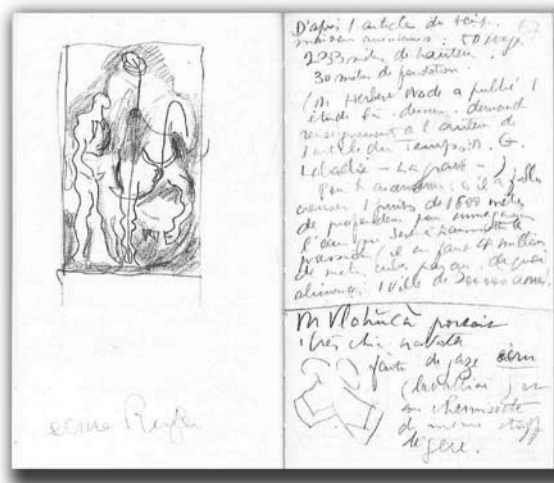 ecrire
D'après 1 article du temps.
maisons américaines : 50 étages
2 mètres de hauteur.
30 mètres de fondation.
(M Herbert Wade a publié 1
étude là-dessus. demander
renseignement à l'auteur de
l'article du Temps : M. G.
Labadié - Lagrave - )
Pour les ascenseurs : il a fallu
creuser 1 puits de 1800 mètres
de profondeur pour emmagasiner
l'eau qui sert à transmettre la
pression (il en faut 4 millions
de mètres cubes par an. de quoi
alimenter 1 ville de âmes.
M Vlahuta portait
1 très chic cravate
faite de gaze écru
(lavallière) sur
une chemisette
de même étoffe
de gaze.